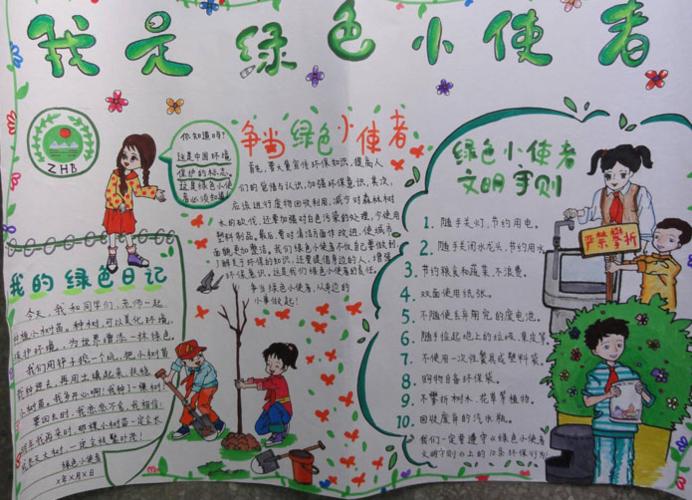 我是绿色小使者
ZHB
你知道吗?
这是中国环境
保护的标志。
这是绿色小使
者必须知道
争当绿色小使者
首先,要大量宣传环保知识,提高人
们的觉悟与认识,加强环保意识。其次,
应该进行废物回收利用,减少对森林树
木的砍伐,还要加强对白色污染的处理,少使用
塑料制品。最后,要对清洁面作改进,使城市
面貌更加整洁。我们绿色小使者不仅自己要做到,
了解关于环保的知识,还要提倡身边的人,增强
环保意识,这是我们绿色小使者的责任。
争当绿色小使者,从身边的
小事做起!
绿色小使者
文明守则
1. 随手关灯,节约用电。
2. 随手关闭水龙头,节约用水
3. 节约粮食和蔬菜,不浪费。
4. 双面使用纸张。
5. 不随便丢弃用完的废电池。
6. 随手捡起地上的垃圾、果皮等
7. 不使用一次性餐具或塑料袋。
8. 购物自备环保袋。
9. 不攀折树木、花草等植物。
10. 回收废弃的汽水瓶。
我们一定要遵守《绿色小使者
文明守则》上的10条环保行为
严禁攀折
我的绿色日记
今天,我和同学们、老师一起
种植小树苗。种树,可以美化环境,
保护环境,为世界增添一抹绿色
我们用铲子挖一个坑,把小树苗
放进去,再用土填起来,扶稳
小树苗。我多开心啊!我种了一棵树!
要回去时,我恋恋不舍,我相信:
我再来时,那棵小树苗一定会长
成参天大树,一定会枝繁叶茂!
绿色小使者
X年X月X日